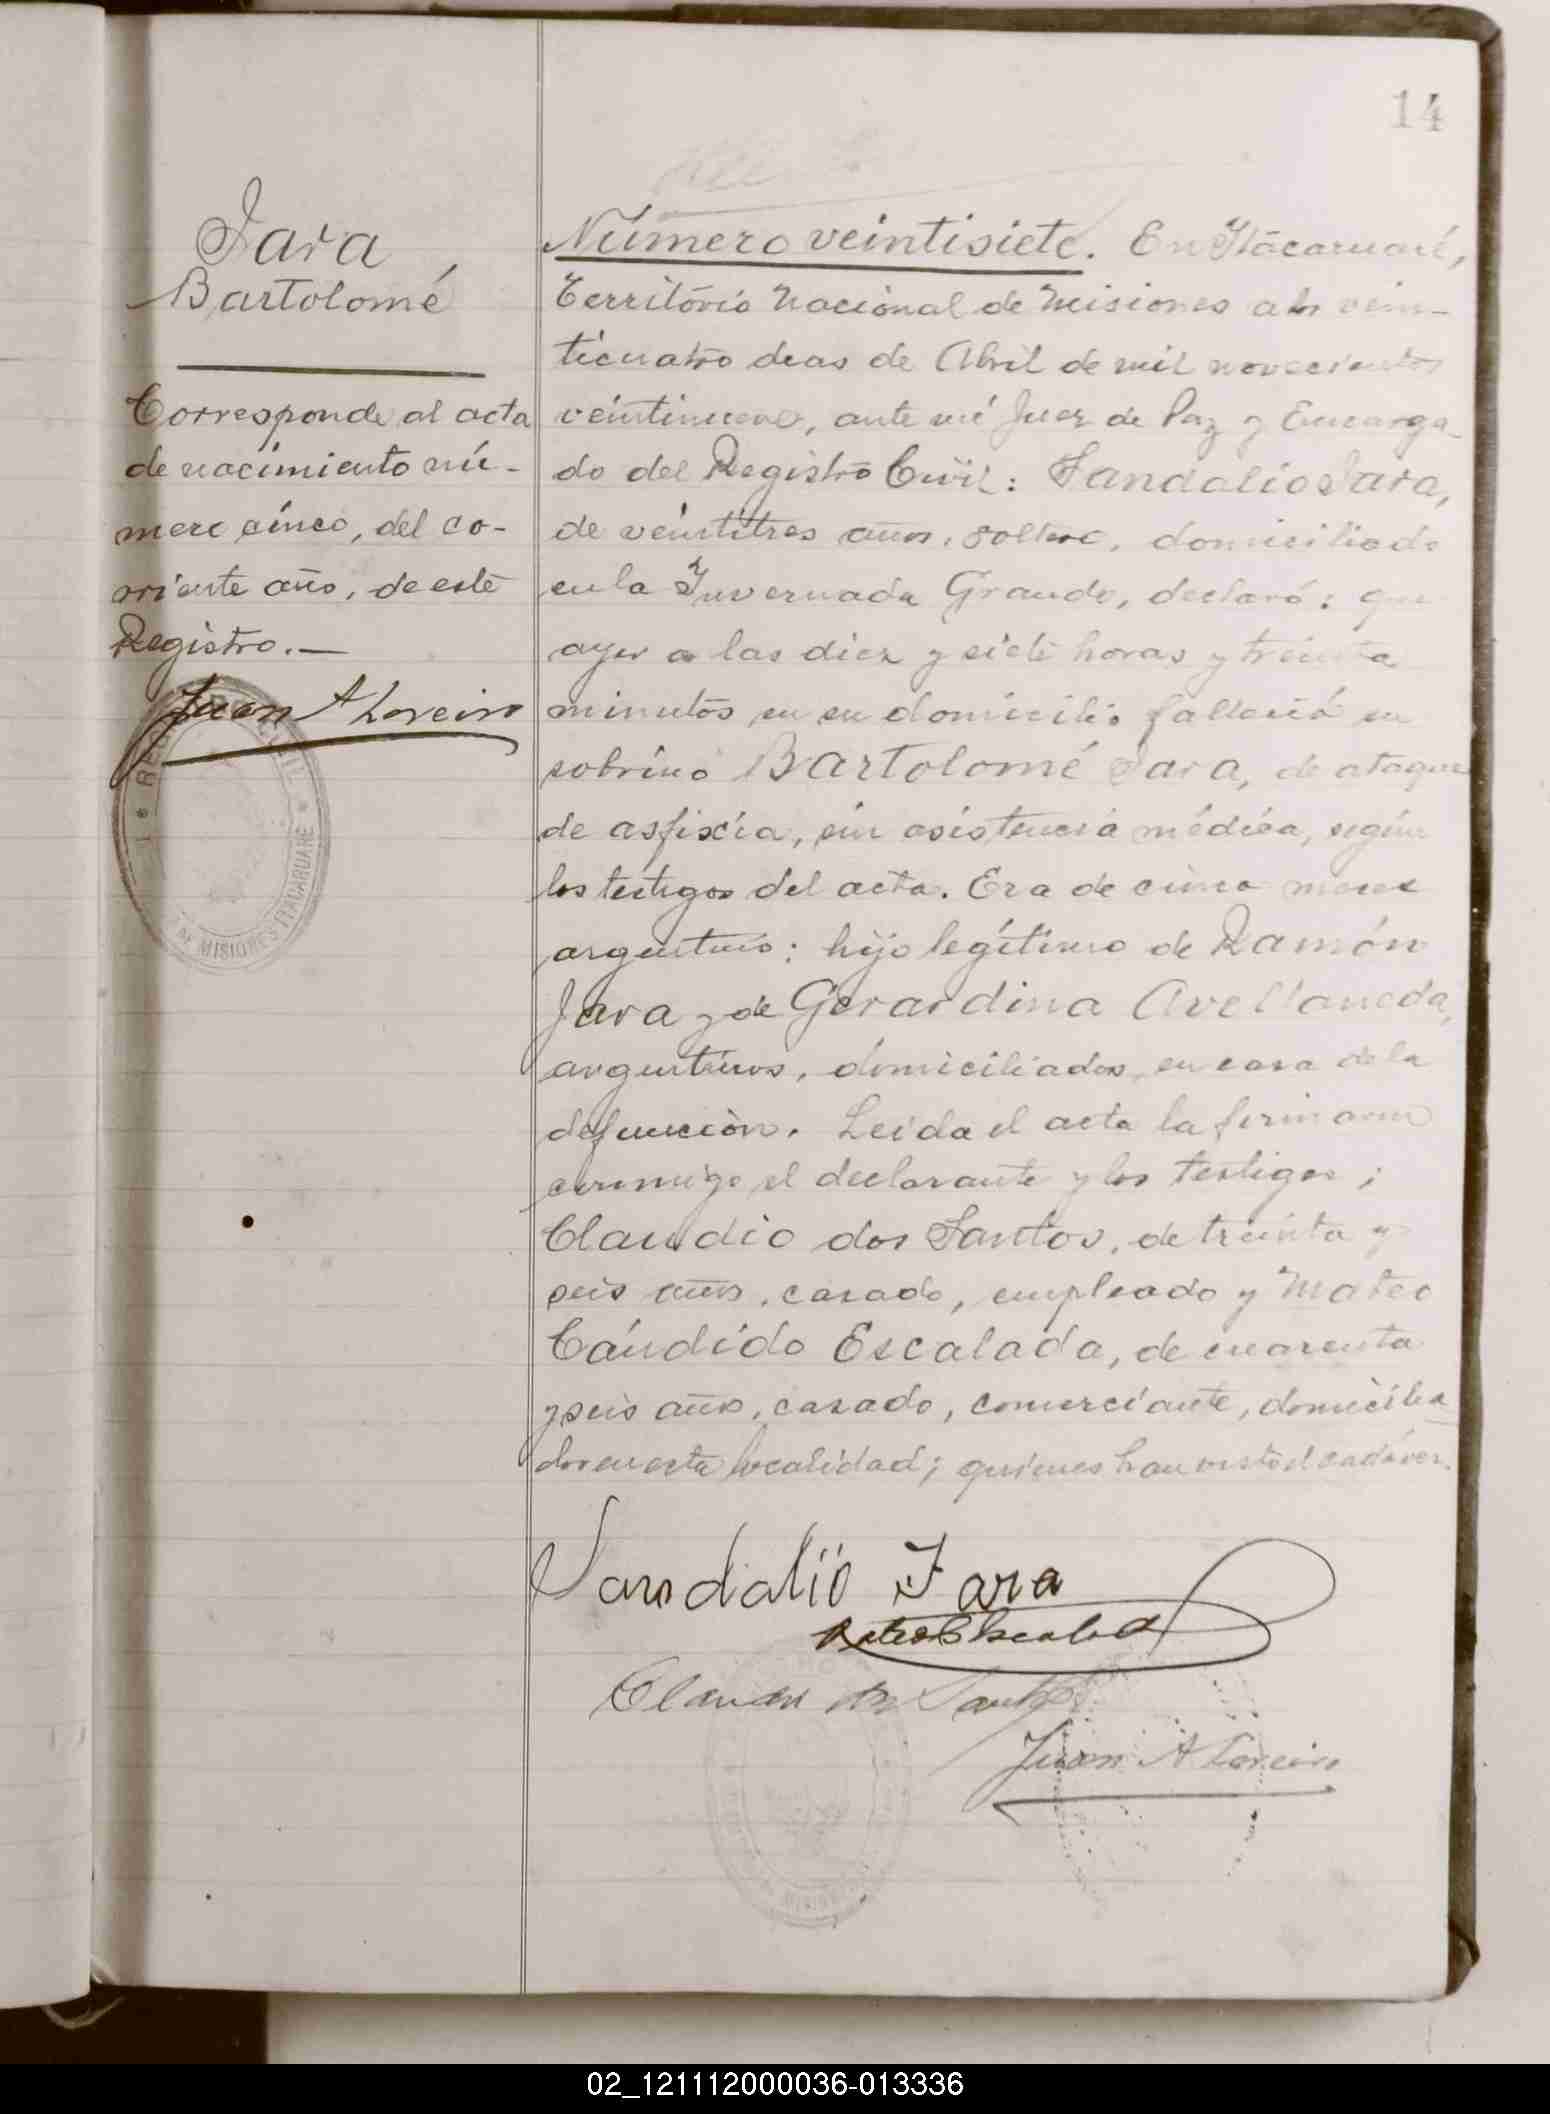 14
Jara
Bartolomé
Corresponde al acta
de nacimiento nú-
mero cinco, del co-
rriente año, de este
Registro.—
Juan A Loreiro
REGISTRO CIVIL
MISIONES ITACARUARE
Número veintisiete. En Itacaruaré,
Território Nacional de Misiones a los vein-
ticuatro dias de Abril de mil novecientos
veintinueve, ante mí Juez de Paz y Encarga-
do del Registro Civil: Sandalio Jara,
de veintitres años, soltero, domiciliado
en la Invernada Grande, declaró: que
ayer a las diez y siete horas y treinta
minutos en su domicilio falleció su
sobrino Bartolomé Jara, de ataque
de asfixia, sin asistencia médica, según
los testigos del acta. Era de cinco meses
argentino: hijo legítimo de Ramón
Jara y de Gerardina Avellaneda,
argentinos, domiciliados en casa de la
defunción. Leída el acta la firmaron
conmigo el declarante y los testigos;
Claudio dos Santos, de treinta y
seis años, casado, empleado y Mateo
Cándido Escalada, de cuarenta
y seis años, casado, comerciante, domicilia
dos en esta localidad; quienes han visto el cadáver.
Sandalio Jara
Mateo C Escalada
Claudio dos Santos
Juan A Loreiro
02_121112000036-013336